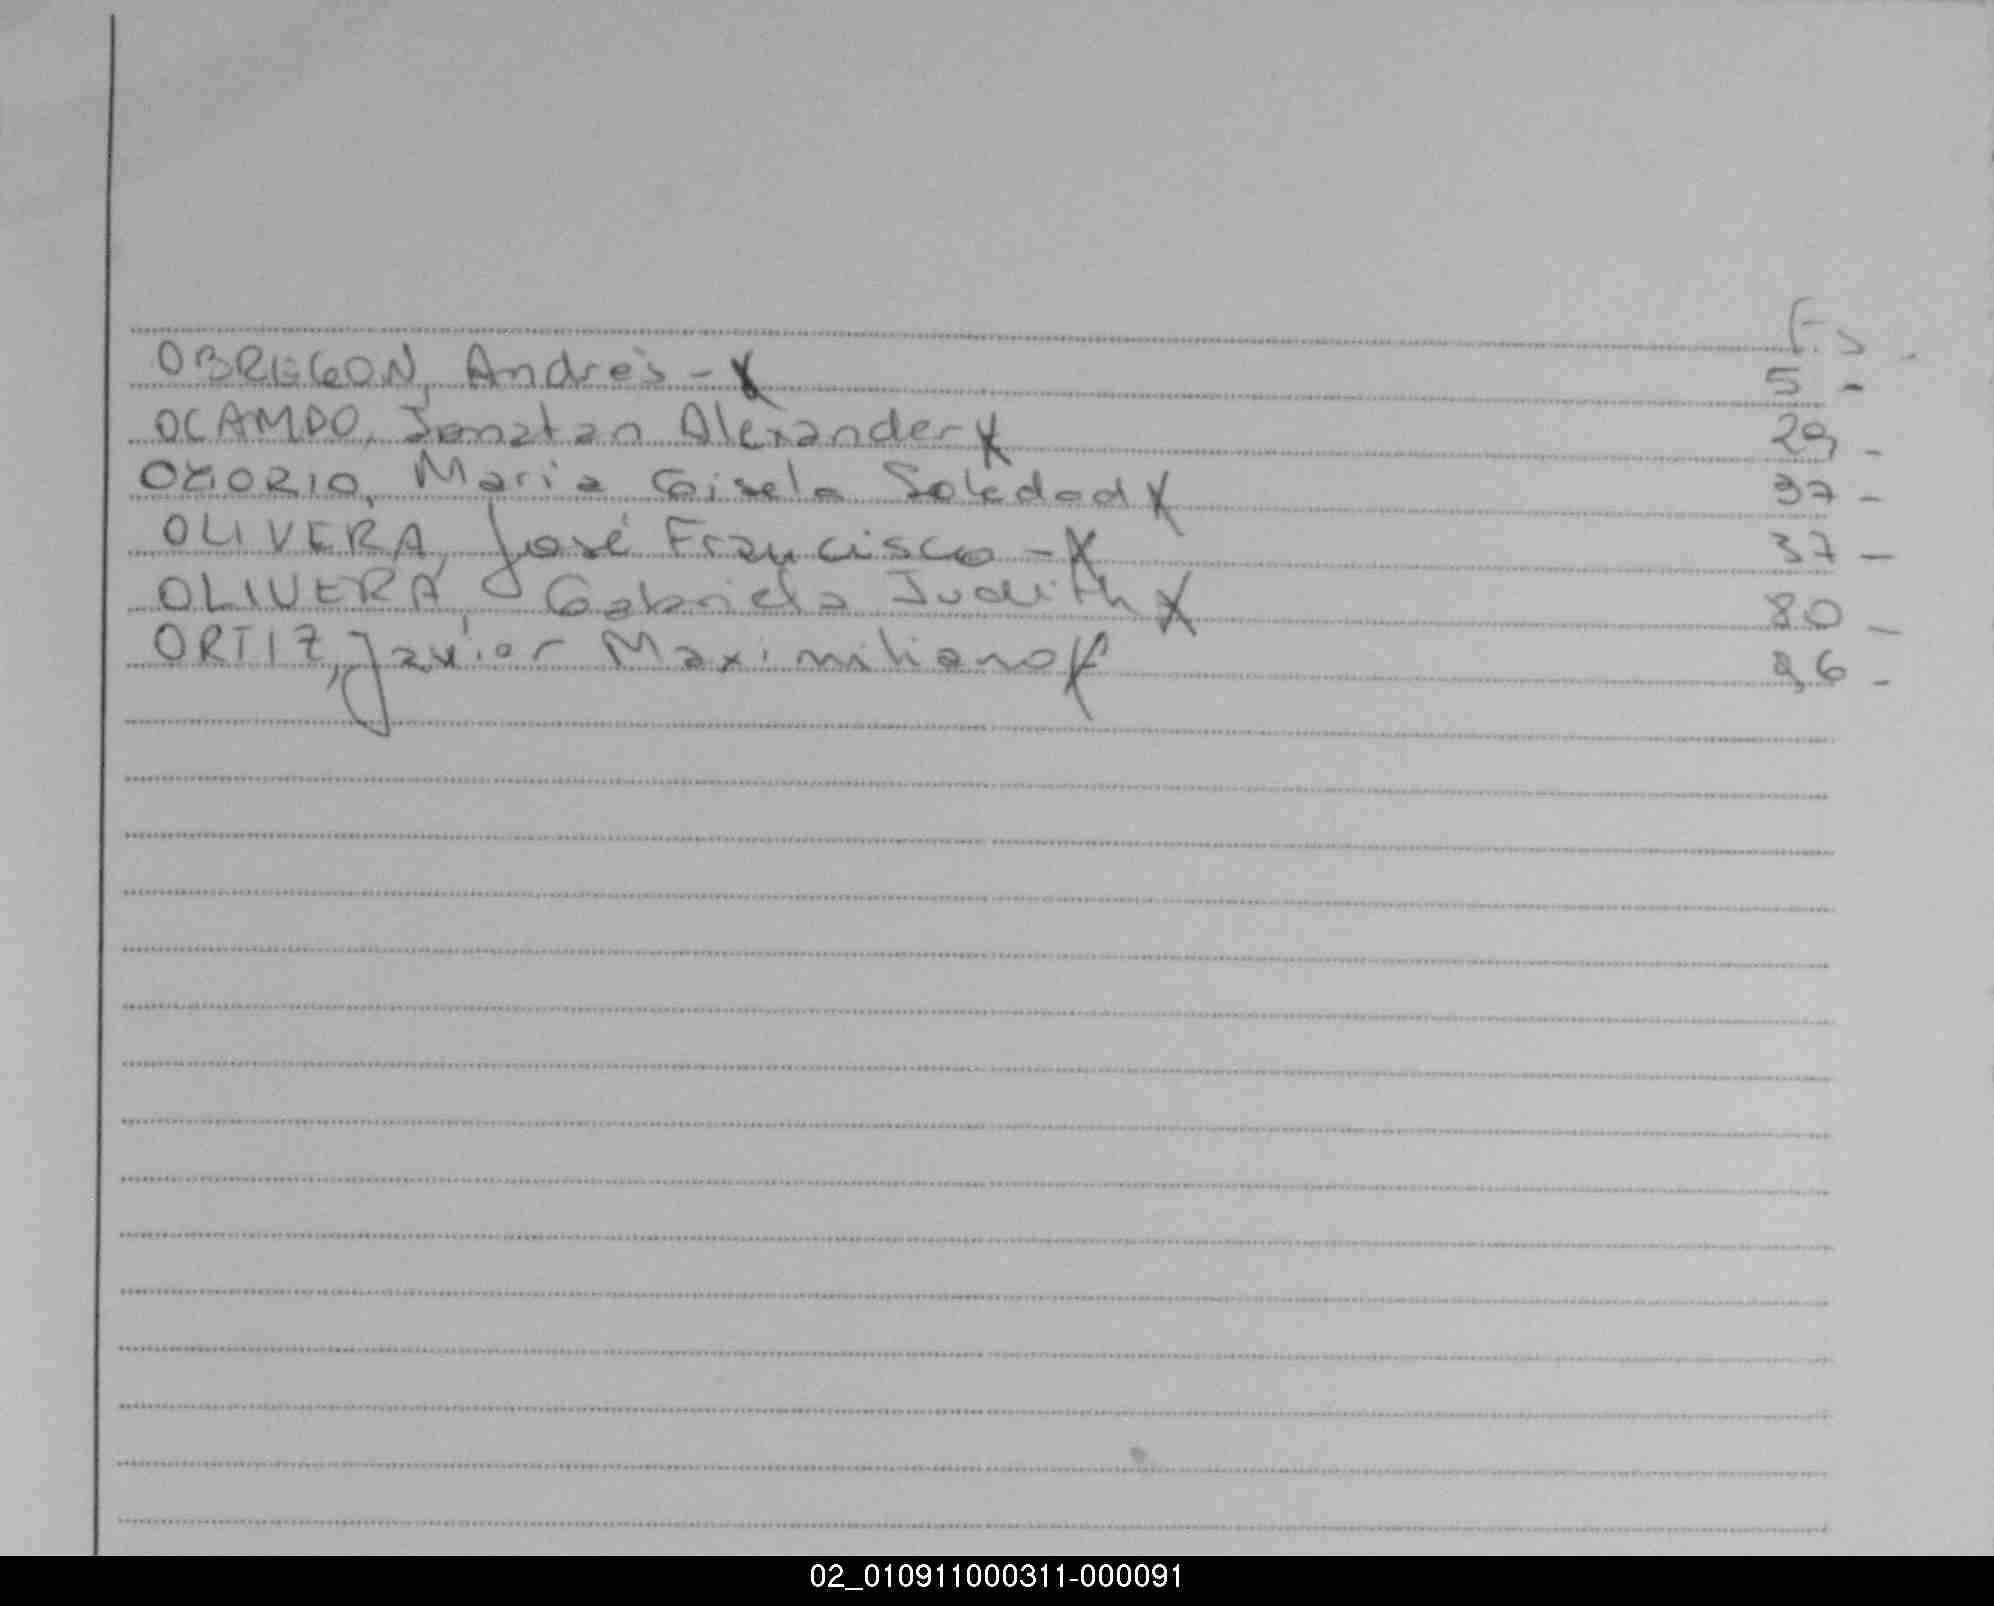 Fs -
OBREGON, Andrés - X 5 -
OCAMPO, Jonatan Alexander X 29 -
OSORIO, Maria Gisela Soledad X 37 -
OLIVERA, José Francisco - X 37 -
OLIVERA, Gabriela Judith X 80 -
ORTIZ, Javier Maximiliano X 96 -
02_010911000311-000091